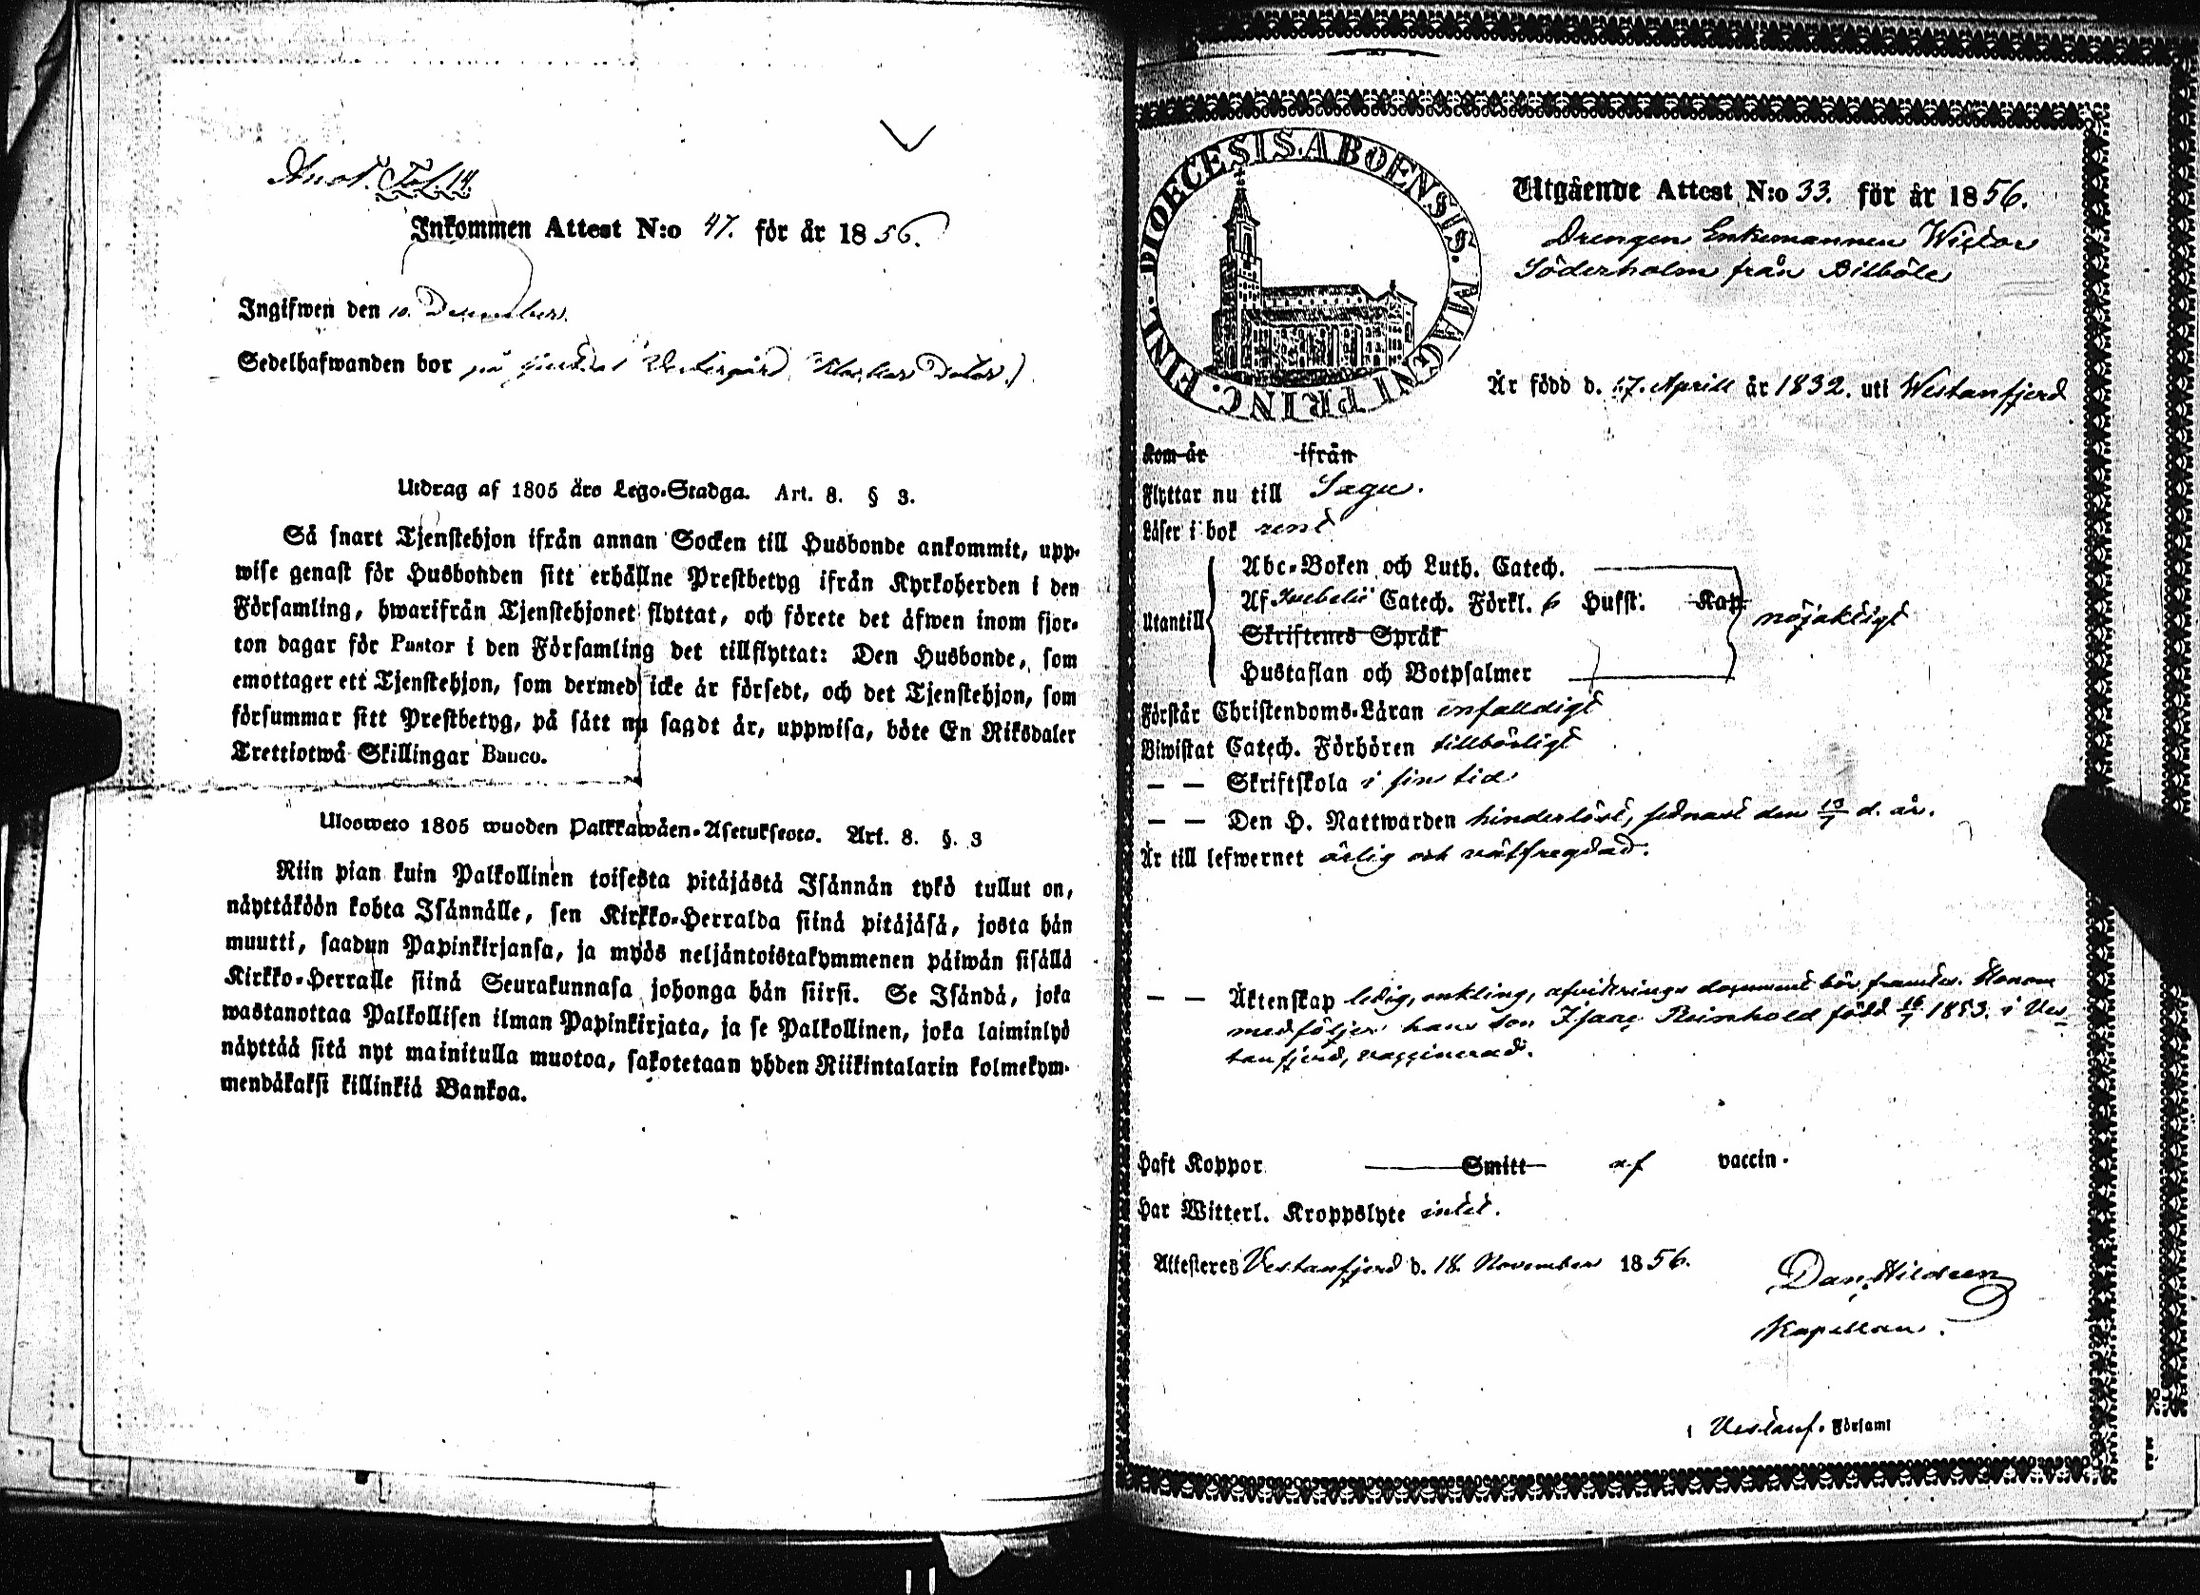 Anot. Fol. 14.
Inkommen Attest N:o 47. för år 1856.
Ingifwen den 10. December.
Sedelhafwanden bor på
Utdrag af 1805 års Lego-Stadga. Art. 8. § 3.
Så snart Tjenstehjon ifrån annan Socken till Husbonde ankommit, upp-
wise genast för Husbonden sitt erhållne Prestbetyg ifrån Kyrkoherden i den
Församling, hwarifrån Tjenstehjonet flyttat, och förete det äfwen inom fjor-
ton dagar för Pastor i den Församling det tillflyttat: Den Husbonde, som
emottager ett Tjenstehjon, som dermed icke är försedt, och det Tjenstehjon, som
försummar sitt Prestbetyg, på sätt nu sagdt är, uppwisa, böte En Riksdaler
Trettiotwå Skillingar Banco.
Ulosweto 1805 wuoden Palkkawäen-Asetuksesta. Art. 8. §. 3
Niin pian kuin Palkollinen toisesta pitäjästä Isännän tykö tullut on,
näyttäköön kohta Isännälle, sen Kirkko-Herralda siinä pitäjäsä, josta hän
muutti, saadun Papinkirjansa, ja myös neljäntoistakymmenen päiwän sisällä
Kirkko-Herralle siinä Seurakunnasa johonga hän siirsi. Se Isändä, joka
wastanottaa Palkollisen ilman Papinkirjata, ja se Palkollinen, joka laiminlyö
näyttää sitä nyt mainitulla muotoa, sakotetaan yhden Riikintalarin kolmekym-
mendäkaksi killinkiä Bankoa.
DIOECESIS ABOENSIS. MAGNI PRINC. FINL.
Utgående Attest N:o 33. för år 1856.
Drengen Enkemannen Wictor
Söderholm från Billböle
Är född d. 17. Aprill år 1832. uti Westanfjerd
Kom år ifrån
Flyttar nu till Sagu.
Läser i bok rent
Utantill
Abc-Boken och Luth. Catech.
Af Svebelii Catech. Förkl. 6 Hufst. Kap.
nöjaktigt
Skriftenes Språk
Hustaflan och Botpsalmer
Förstår Christendoms-Läran enfaldigt
Biwistat Catech. Förhören tillbörligt
— — Skriftskola i sin tid
— — Den H. Nattwarden hinderlöst, sednast den 13/7 d. år.
Är till lefwernet ärlig och välfrägdad.
— — Äktenskap ledig, enkling, afvittrings document bör framtes. Honom
medföljer hans son Isaac Reinhold född 16/7 1853. i Ves-
tanfjerd, vaccinerad.
Haft Koppor Smitt af vaccin.
Har Witterl. Kroppslyte intet.
Attesteres Vestanfjerd d. 18. November 1856.
Dan. Hildeen
Kapellan.
i Vestanf. Församl